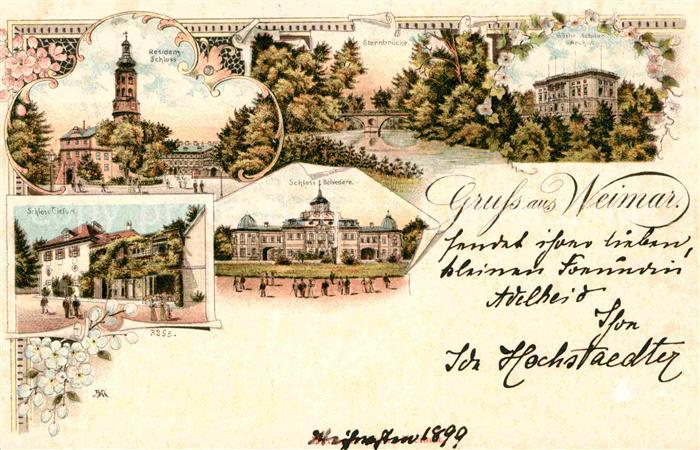 Residenz
Schloss
Sternbrücke.
Göthe-Schiller
Archiv.
Schloss Tiefurt.
Schloss Belvedere.
3255.
Gruss aus Weimar.
sendet ihrer lieben,
kleinen Freundin
Adelheid
Ihre
Ida Hochstaedter
Weihnachten 1899